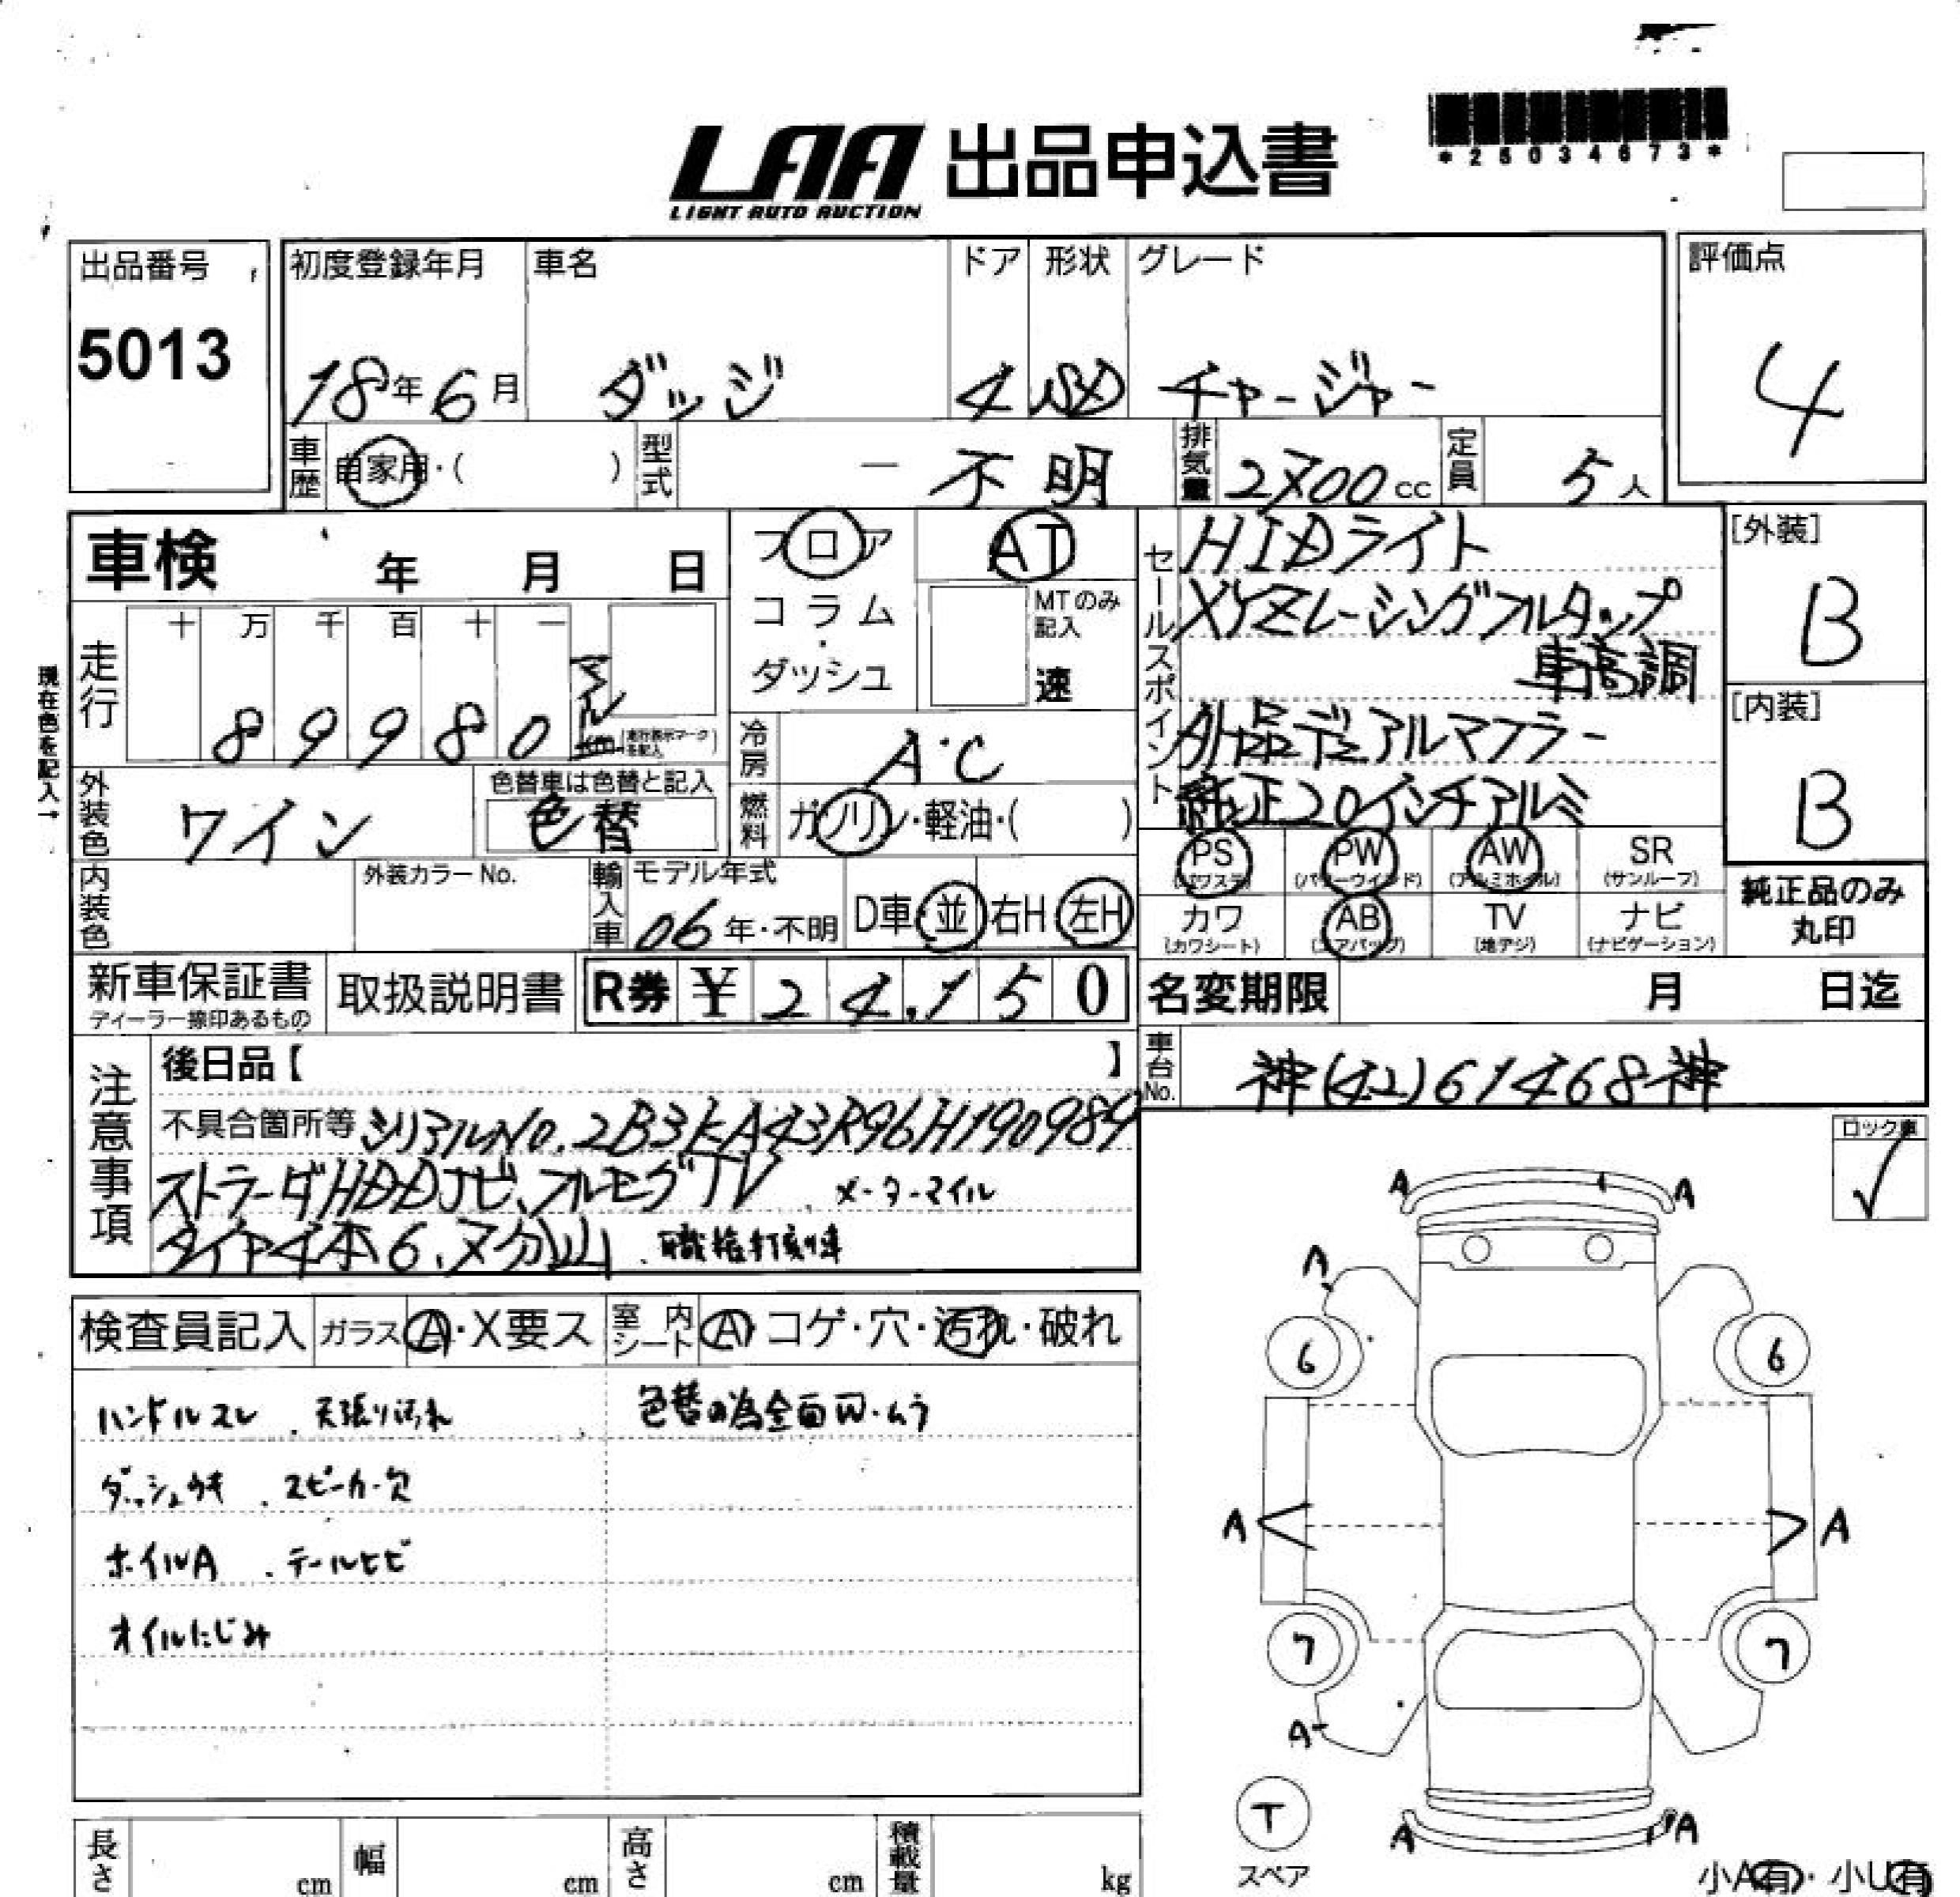 LAA 出品申込書
LIGHT AUTO AUCTION
*25034673*
出品番号
5013
初度登録年月 車名 ドア 形状 グレード
18年6月 ダッジ 4 SD チャージャー
評価点
4
車歴 自家用・( ) 型式 ー 不明 排気量 2700cc 定員 5人
車検 年 月 日
フロア AT
コラム・ダッシュ
MTのみ記入
速
走行 十 万 千 百 十 一
89980 マイル
km (走行表示マークを記入)
現在色を記入→
冷房 AC
燃料 ガソリン・軽油・( )
外装色 ワイン
色替車は色替と記入
色替
内装色 外装カラーNo.
輸入車 モデル年式
06年・不明 D車・並 右H・左H
セールスポイント
HIDライト
XYZレーシングフルタップ
車高調
外品デュアルマフラー
純正20インチアルミ
[外装]
B
[内装]
B
PS (パワステ) PW (パワーウインド) AW (アルミホイル) SR (サンルーフ)
カワ (カワシート) AB (エアバッグ) TV (地デジ) ナビ (ナビゲーション)
純正品のみ
丸印
新車保証書
ディーラー捺印あるもの
取扱説明書
R券 ¥24,150
名変期限 月 日迄
車台No. 神(42)61468神
注意事項
後日品【 】
不具合箇所等 シリアルNo. 2B3KA43R96H190989
ストラーダHDDナビ、フルセグTV メーターマイル
タイヤ4本6、7分山. 職権打刻車
ロック車
検査員記入 ガラス A・X要ス 室内シート A コゲ・穴・汚れ・破れ
ハンドルスレ . 天張り汚れ 色替の為全面W・ムラ
ダッシュウキ . スピーカー欠
ホイルA . テールヒビ
オイルにじみ
A A
A
6 6
A A
7 7
A
T
スペア
A A
小A有・小U有
長さ cm 幅 cm 高さ cm 積載量 kg